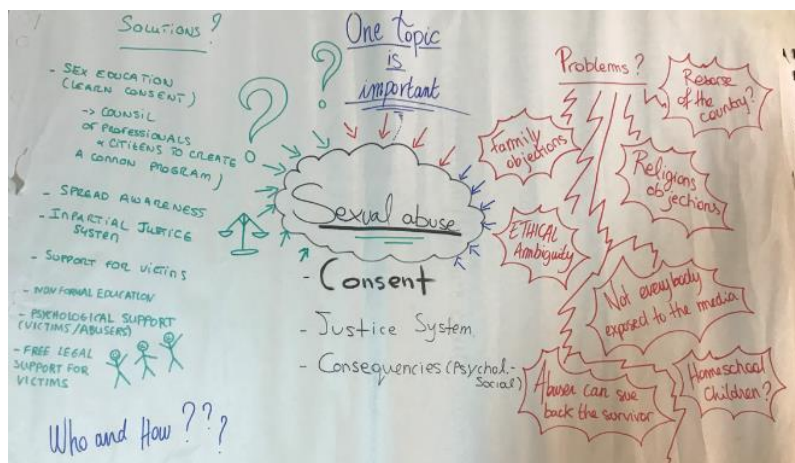 Solutions?
- SEX EDUCATION
(LEARN CONSENT)
-> COUNSIL
OF PROFESSIONALS
& CITIZENS TO CREATE
A COMMON PROGRAM)
- SPREAD AWARENESS
- INPARTIAL JUSTICE
SYSTEM
- SUPPORT FOR VICTINS
- NON FORMAL EDUCATION
- PSYCHOLOGICAL SUPPORT
(VICTINS/ABUSERS)
- FREE LEGAL
SUPPORT FOR
VICTINS
Who and How ???
One topic
is
important
? ?
Sexual abuse
- Consent
- Justice System
- Consequencies (Psychol.-
Social)
Problems?
family
objections
of the
country?
Religions
objections
ETHICAL
Ambiguity
Not everybody
exposed to the media
Abuser can sue
back the survivor
Homeschool
children?